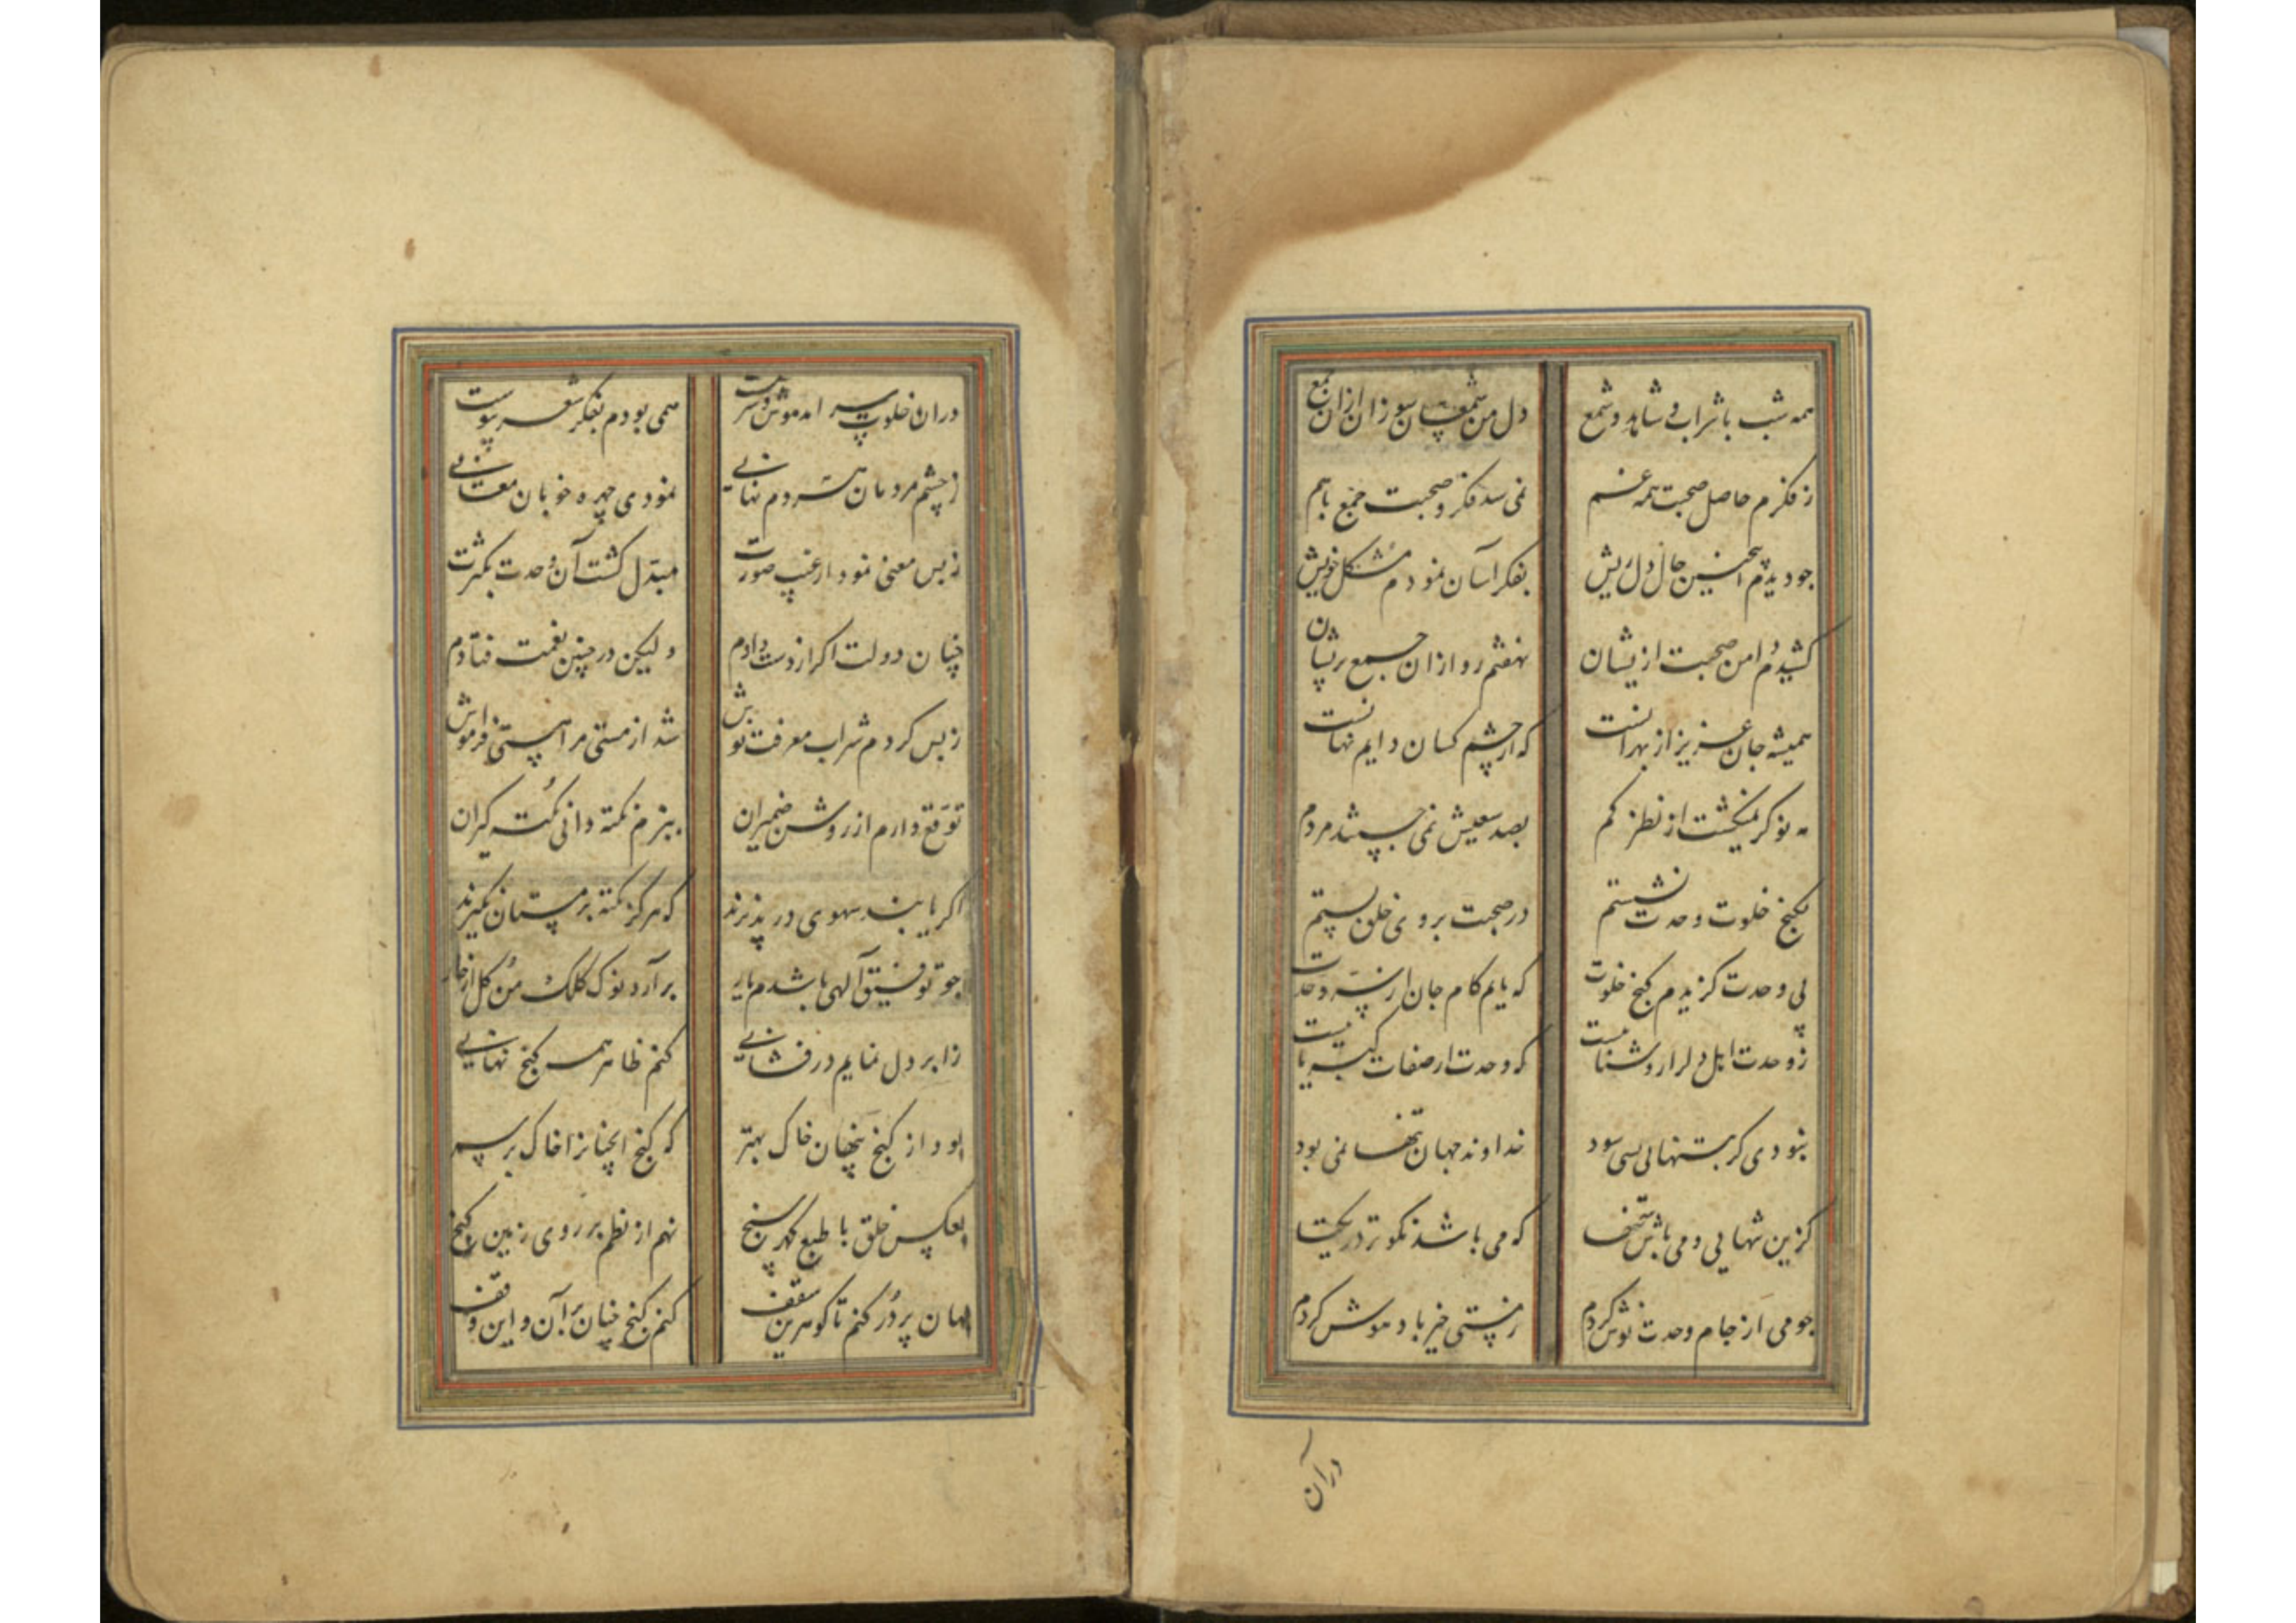 همه شب با شراب و شاهد و شمع دل من شمع سان سوزان ازان جمع
ز فکرم حاصل صحبت همه غم نمی شد فکر و صحبت جمع با هم
چو دیدم اینچنین حال دل ریش بفکر آسان نمودم مشکل خویش
کشیدم دامن صحبت ازیشان نهفتم رو ازان جمع پریشان
همیشه جان عزیز از بهر آنست که از چشم کسان دایم نهانست
مه نو گر نمیگشت از نظر گم بصد سعیش نمی جستند مردم
بکنج خلوت وحدت نشستم در صحبت بروی خلق بستم
پی وحدت گزیدم کنج خلوت که یابم کام جان از سر وحدت
ز وحدت اهل دل را روشناییست که وحدت از صفات کبریاییست
نبودی گر بتنهایی بسی سود خداوند جهان تنها نمی بود
گزین تنهایی و می باش تنها که می باشد نکوتر در یکتا
چو می از جام وحدت نوش کردم ز هستی خیرباد هوش کردم
درآن
دران خلوت سرا مدهوش و سرمست همی بودم بفکر شعر پیوست
ز چشم مردمان هر دم نهانی نمودی چهره خوبان معانی
ز بس معنی نمود از غیب صورت مبدل گشت آن وحدت بکثرت
چنان دولت اگر از دست دادم ولیکن در چنین نعمت فتادم
ز بس کردم شراب معرفت نوش شد از مستی مرا هستی فراموش
توقع دارم از روشن ضمیران ببزم نکته دانی نکته گیران
اگر یابند سهوی در پذیرند که هرگز نکته بر مستان نگیرند
چو توفیق آلهی باشدم یار برآرد نوک کلک من گل از خار
ز ابر دل نمایم درفشانی کنم ظاهر همه گنج نهانی
بود از گنج پنهان خاک بهتر که گنج اینچنانرا خاک بر سر
بعکس خلق با طبع گهرسنج نهم از نظم بر روی زمین گنج
جهان پر در کنم تا گوهرین سقف کنم گنج چنان بر آن و این وقف